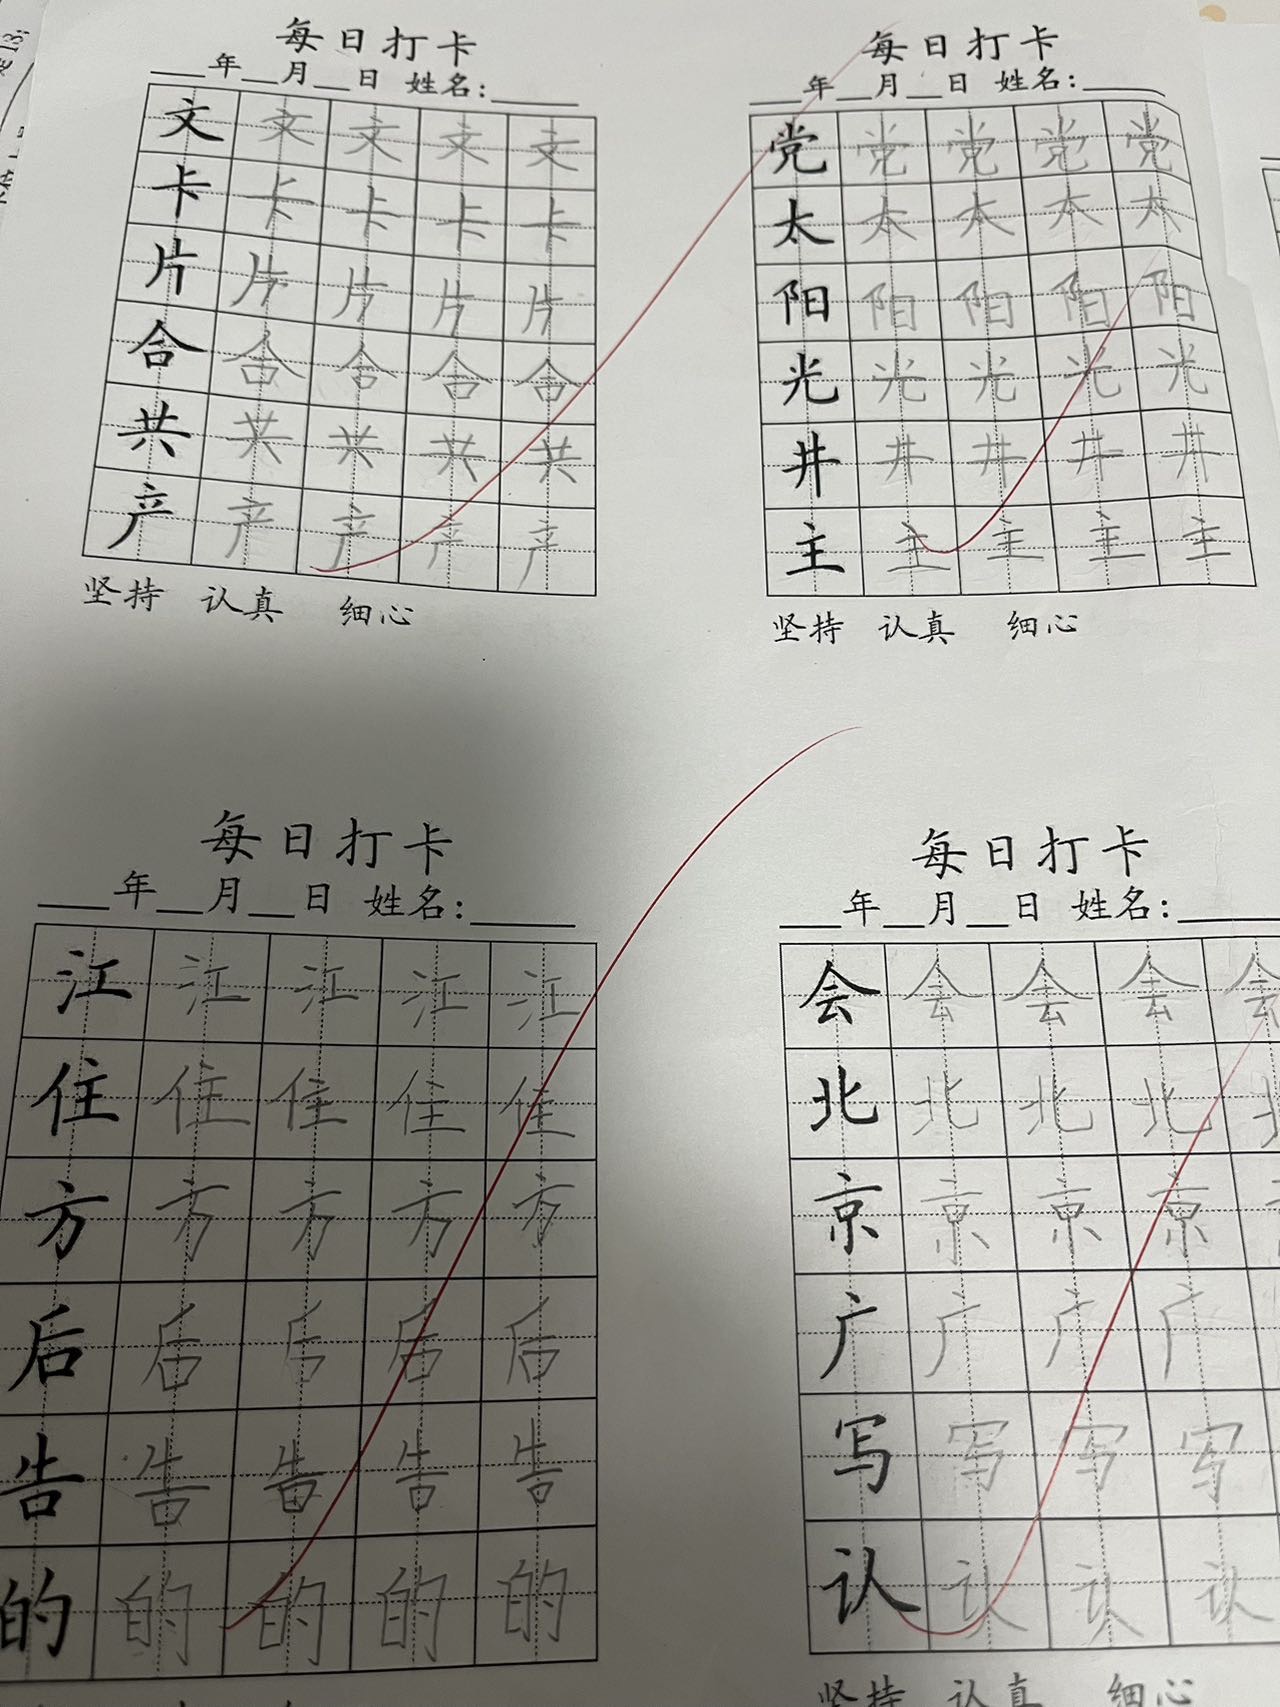 每日打卡
___年__月__日 姓名:_____
文 文 文 文 文
卡 卡 卡 卡 卡
片 片 片 片 片
合 合 合 合 合
共 共 共 共 共
产 产 产 产 产
坚持 认真 细心
每日打卡
___年__月__日 姓名:_____
党 党 党 党 党
太 太 太 太 太
阳 阳 阳 阳 阳
光 光 光 光 光
井 井 井 井 井
主 主 主 主 主
坚持 认真 细心
每日打卡
___年__月__日 姓名:_____
江 江 江 江 江
住 住 住 住 住
方 方 方 方 方
后 后 后 后 后
告 告 告 告 告
的 的 的 的 的
每日打卡
___年__月__日 姓名:_____
会 会 会 会 会
北 北 北 北
京 京 京 京
广 广 广 广
写 写 写 写
认 认 认 认
坚持 认真 细心